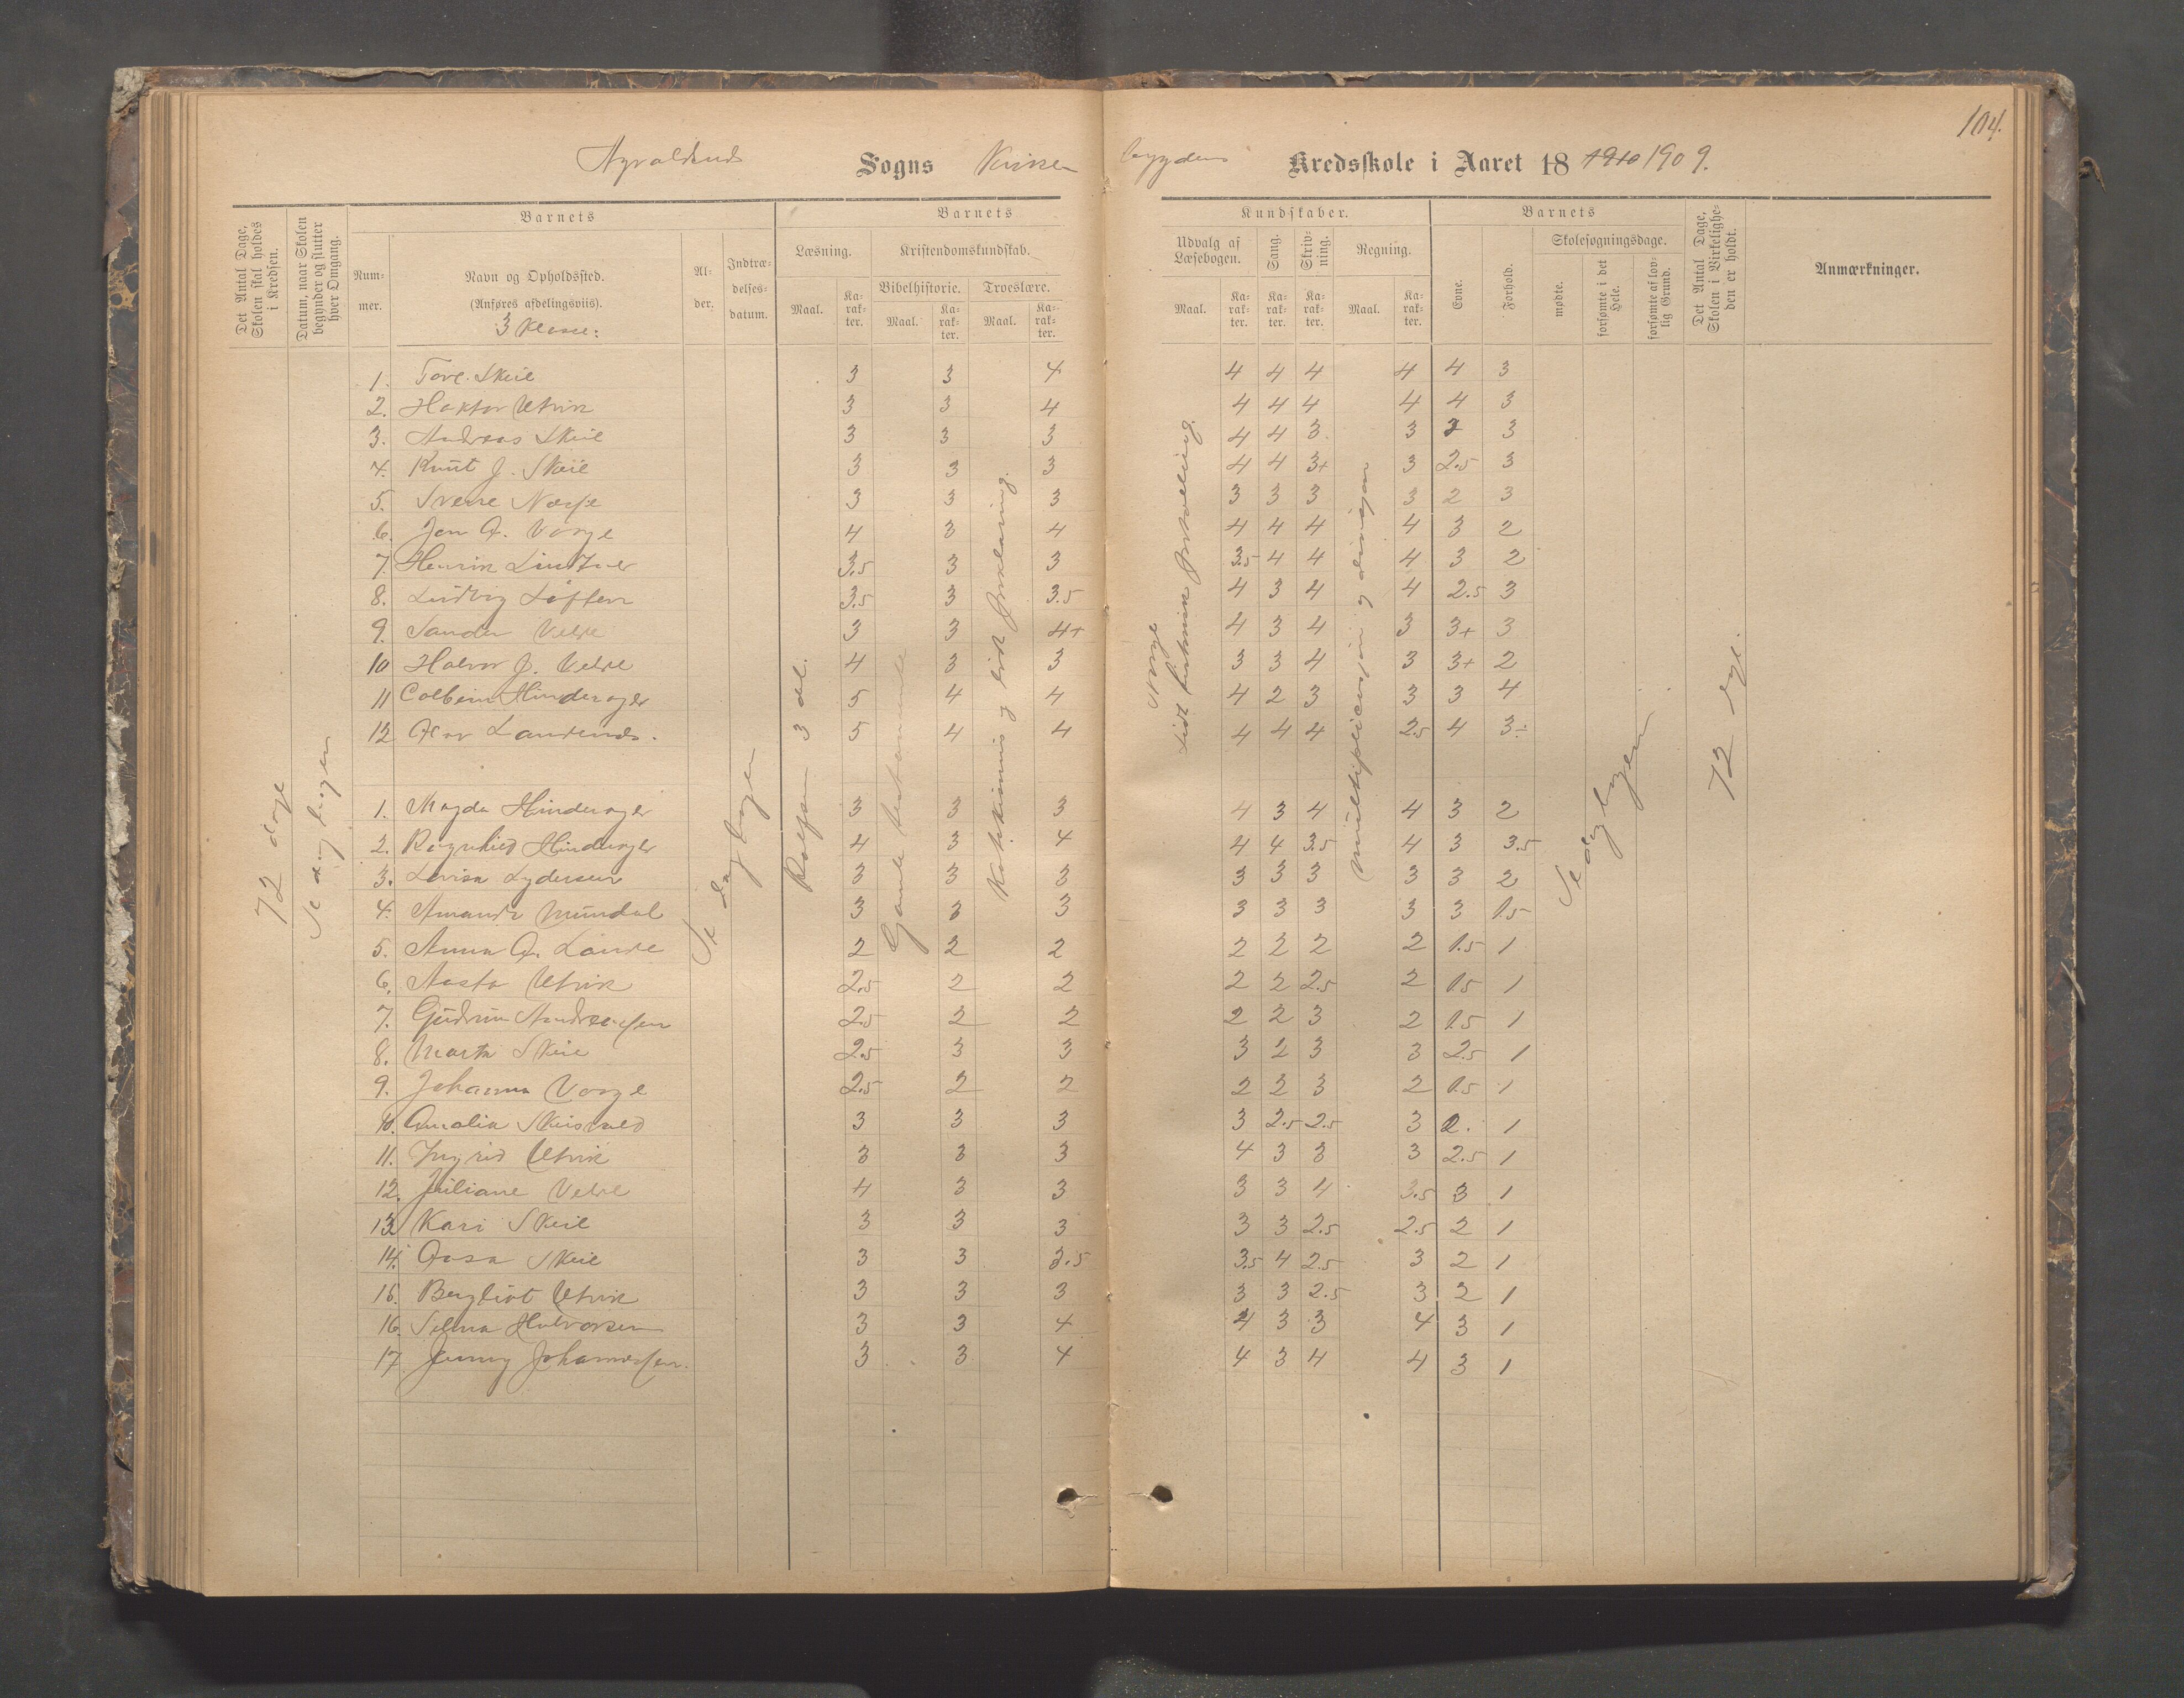 104.
Sogns
bygdens Kredsskole i Aaret 18 1910 1909.
Det Antal Dage, Skolen skal holdes i Kredsen.
Datum, naar Skolen begynder og slutter hver Omgang.
Barnets
Nummer.
Navn og Opholdssted.
(Anføres afdelingsviis).
3 Klasse:
Alder.
Indtrædelsesdatum.
Barnets
Læsning.
Kristendomskundskab.
Bibelhistorie. Troeslære.
Maal. Karakter. Maal. Karakter. Maal. Karakter.
Kundskaber.
Udvalg af Læsebogen.
Sang.
Skrivning.
Regning.
Maal. Karakter. Karakter. Karakter. Maal. Karakter.
Barnets
Evne.
Forhold.
Skolesøgningsdage.
mødte.
forsømte i det Hele.
forsømte af lovlig Grund.
Det Antal Dage, Skolen i Virkeligheden er holdt.
Anmærkninger.
72 dage
Se dagbogen
Se dagbogen
Rolfsen 3 del.
Gamle testamente
Katekismus og lidt forklaring.
Norge
Lidt historisk fortælling.
Multiplikasjon og divisjon
Se dagbogen
72 dge.
1. Tore Skeie 3 3 4 4 4 4 4 4 3
2. Haktor Utvik 3 3 4 4 4 4 4 4 3
3. Andreas Skeie 3 3 3 4 4 3 3 3 3
4. Knut J. Skeie 3 3 3 4 4 3+ 3 2.5 3
5. Sverre Nesse 3 3 3 3 3 3 3 2 3
6. Jon A. Vorge 4 3 4 4 4 4 4 3 2
7. Henrik Lindtner 3.5 3 3 3.5 4 4 4 3 2
8. Ludvig Loften 3.5 3 3.5 4 3 4 4 2.5 3
9. Sander Velde 3 3 4+ 4 3 4 3 3+ 3
10 Halvor J. Velde 4 3 3 3 3 4 3 3+ 2
11 Colbein Hinderager 5 4 4 4 2 3 3 3 4
12 Olav Landenes. 5 4 4 4 4 4 2.5 4 3÷
1. Magda Hinderager 3 3 3 4 3 4 4 3 2
2. Ragnhild Hinderager 4 3 4 4 4 3.5 4 3 3.5
3. Lovisa Lydersen 3 3 3 3 3 3 3 3 2
4. Amanda Mundal 3 3 3 3 3 3 3 3 1.5
5. Anna O. Lande 2 2 2 2 2 2 2 1.5 1
6. Aasta Utvik 2.5 2 2 2 2 2.5 2 1.5 1
7. Gudrun Andreassen 2.5 2 2 2 2 3 2 1.5 1
8. Marta Skeie 2.5 3 3 3 2 3 3 2.5 1
9. Johanna Vorge 2.5 2 2 2 2 3 2 1.5 1
10. Amalia Skeisvold 3 3 3 3 2.5 2.5 3 2. 1
11. Ingrid Utvik 3 3 3 4 3 3 3 2.5 1
12. Juliane Velde 4 3 3 3 3 4 3.5 3 1
13 Kari Skeie 3 3 3 3 3 2.5 2.5 2 1
14. Aasa Skeie 3 3 3.5 3.5 4 2.5 3 2 1
15. Bergliot Utvik 3 3 3 3 3 2.5 3 2 1
16. Selma Halvorsen 3 3 4 4 3 3 4 3 1
17 Jenny Johannessen. 3 3 4 4 3 4 4 3 1